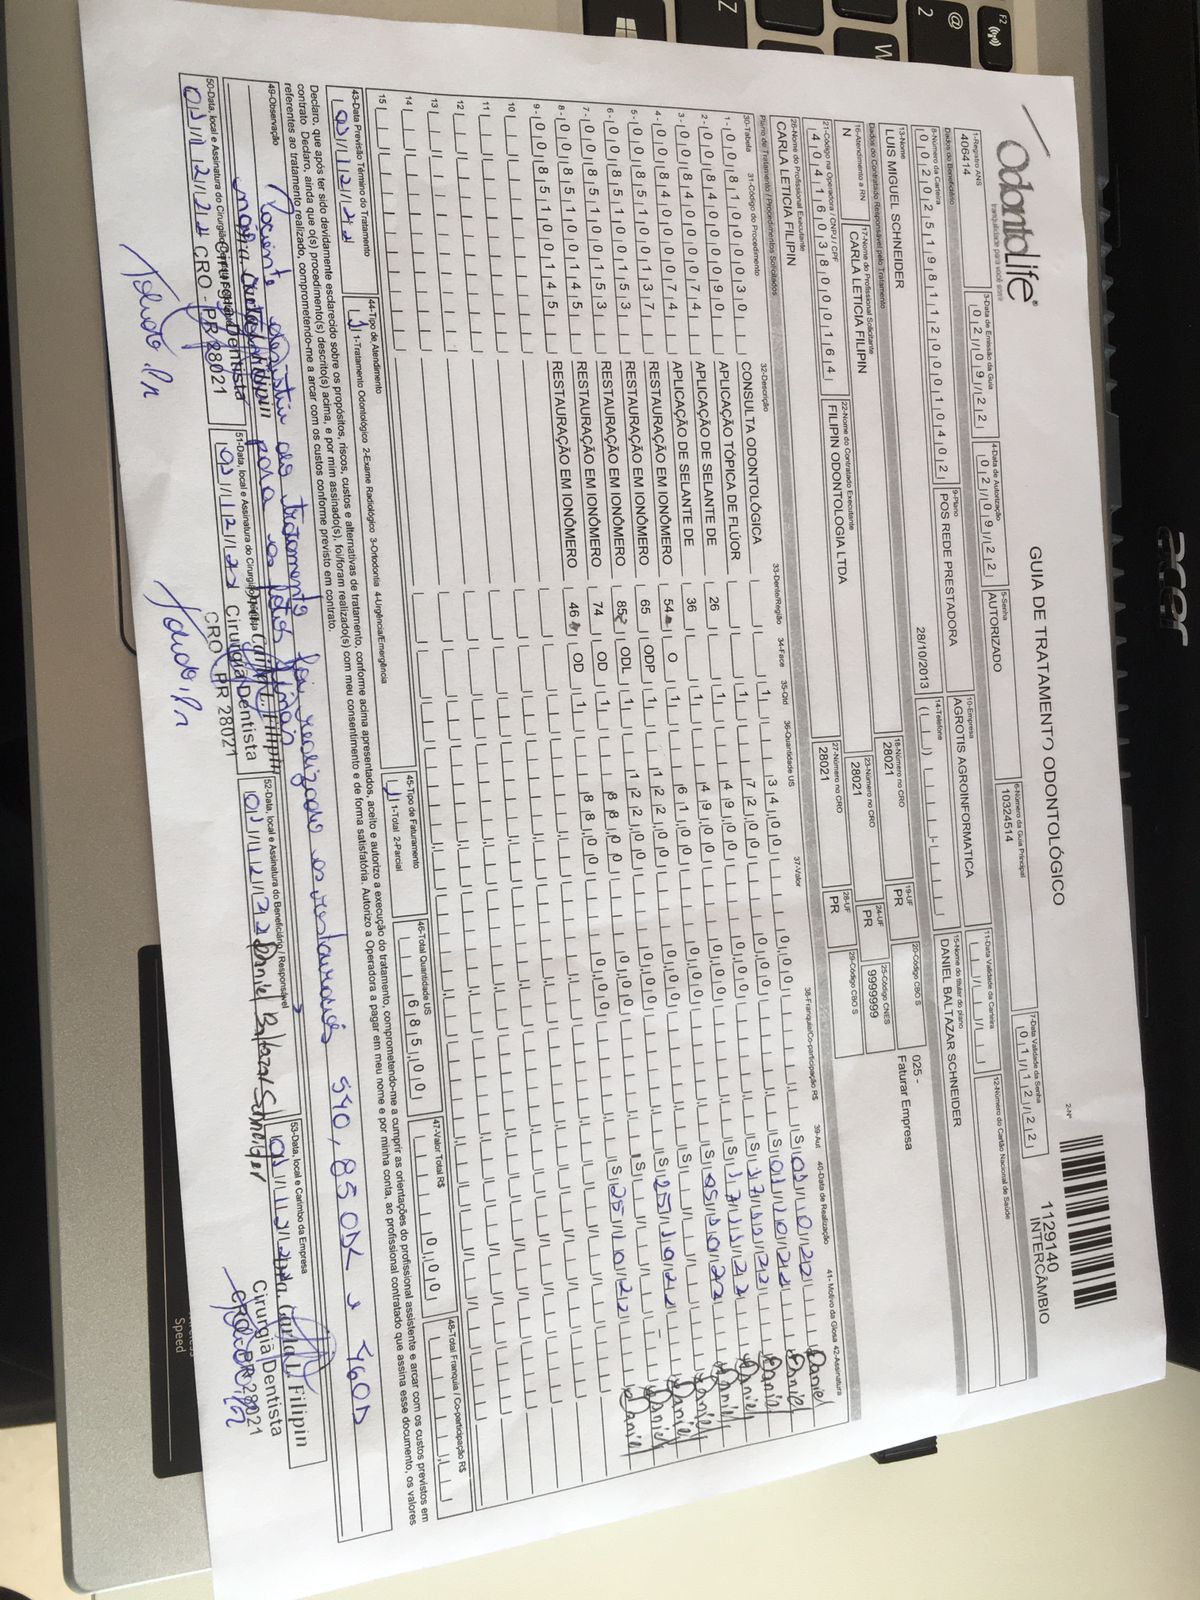 OdontoLife®
tranquilidade para você sorrir
GUIA DE TRATAMENTO ODONTOLÓGICO
2-Nº
1129140
INTERCÂMBIO
1-Registro ANS
406414
3-Data de Emissão da Guia
02/09/22
4-Data de Autorização
02/09/22
5-Senha
AUTORIZADO
6-Número da Guia Principal
10324514
7-Data Validade da Senha
01/12/22
Dados do Beneficiário
8-Número da Carteira
00202519811200010402
9-Plano
POS REDE PRESTADORA
10-Empresa
AGROTIS AGROINFORMATICA
11-Data Validade da Carteira
12-Número do Cartão Nacional de Saúde
13-Nome
LUIS MIGUEL SCHNEIDER
28/10/2013
14-Telefone
15-Nome do titular do plano
DANIEL BALTAZAR SCHNEIDER
Dados do Contratado Responsável pelo Tratamento
16-Atendimento a RN
N
17-Nome do Profissional Solicitante
CARLA LETICIA FILIPIN
18-Número no CRO
28021
19-UF
PR
20-Código CBO S
025 -
Faturar Empresa
21-Código na Operadora / CNPJ / CPF
44041603800016 4
22-Nome do Contratado Executante
FILIPIN ODONTOLOGIA LTDA
23-Número no CRO
28021
24-UF
PR
25-Código CNES
9999999
26-Nome do Profissional Executante
CARLA LETICIA FILIPIN
27-Número no CRO
28021
28-UF
PR
29-Código CBO S
Plano de Tratamento / Procedimentos Solicitados
30-Tabela 31-Código do Procedimento 32-Descrição 33-Dente/Região 34-Face 35-Qtd 36-Quantidade US 37-Valor 38-Franquia/Co-participação R$ 39-Aut 40-Data de Realização 41- Motivo da Glosa 42-Assinatura
1- 00 81000030 CONSULTA ODONTOLÓGICA 1 34,00 0,00 S Daniel
2- 00 84000090 APLICAÇÃO TÓPICA DE FLÚOR 1 72,00 0,00 S Daniel
3- 00 84000074 APLICAÇÃO DE SELANTE DE 26 1 49,00 0,00 S Daniel
4- 00 84000074 APLICAÇÃO DE SELANTE DE 36 1 49,00 0,00 S Daniel
5- 00 85100137 RESTAURAÇÃO EM IONÔMERO 54 O 1 61,00 0,00 S Daniel
6- 00 85100153 RESTAURAÇÃO EM IONÔMERO 65 ODP 1 122,00 0,00 S Daniel
7- 00 85100153 RESTAURAÇÃO EM IONÔMERO 85 ODL 1 122,00 0,00 S 25/10/22 Daniel
8- 00 85100145 RESTAURAÇÃO EM IONÔMERO 74 OD 1 88,00 0,00 S Daniel
9- 00 85100145 RESTAURAÇÃO EM IONÔMERO 46 OD 1 88,00 0,00 S 25/10/22 Daniel
10
11
12
13
14
15
43-Data Previsão Término do Tratamento
44-Tipo de Atendimento
1 1-Tratamento Odontológico 2-Exame Radiológico 3-Ortodontia 4-Urgência/Emergência
45-Tipo de Faturamento
1 1-Total 2-Parcial
46-Total Quantidade US
685,00
47-Valor Total R$
0,00
48-Total Franquia / Co-participação R$
Declaro, que após ter sido devidamente esclarecido sobre os propósitos, riscos, custos e alternativas de tratamento, conforme acima apresentados, aceito e autorizo a execução do tratamento, comprometendo-me a cumprir as orientações do profissional assistente e arcar com os custos previstos em
contrato. Declaro, ainda que o(s) procedimento(s) descrito(s) acima, e por mim assinado(s), foi/foram realizado(s) com meu consentimento e de forma satisfatória. Autorizo a Operadora a pagar em meu nome e por minha conta, ao profissional contratado que assina esse documento, os valores
referentes ao tratamento realizado, comprometendo-me a arcar com os custos conforme previsto em contrato.
49-Observação
Paciente desistiu do tratamento foi realizado as restaurações 540, 85 ODL e 46OD
para as fotos finais
50-Data, local e Assinatura do Cirurgião
Cirurgiã Dentista
CRO - PR 28021
Toledo, Pr
51-Data, local e Assinatura do Cirurgião
Cirurgiã Dentista
CRO - PR 28021
Toledo, Pr
52-Data, local e Assinatura do Beneficiário / Responsável
Daniel Baltazar Schneider
53-Data, local e Carimbo da Empresa
Carla L. Filipin
Cirurgiã Dentista
CRO - PR 28021
acer
F2
@
2
W
Z
Speed